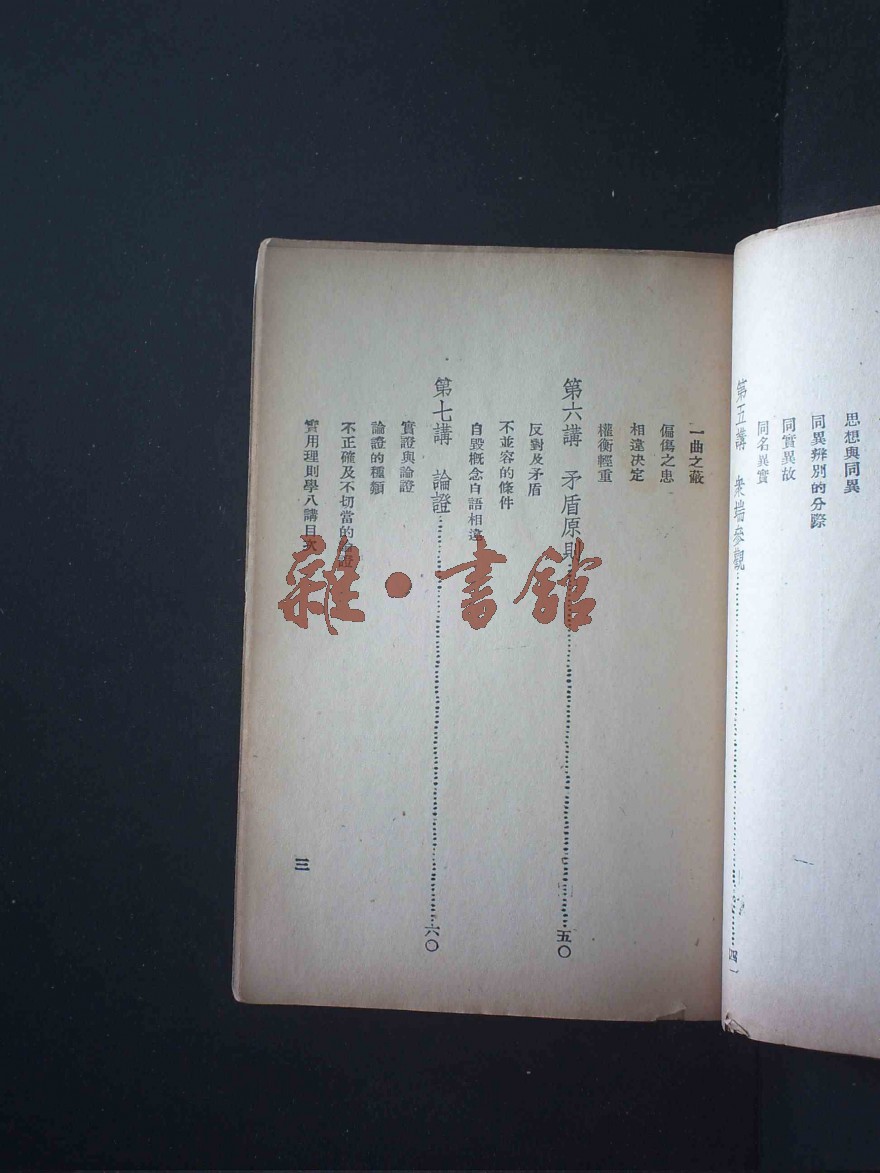 思想與同異
同異辨別的分際
同實異故
同名異實
第五講 衆端參觀……四一
一曲之蔽
偏傷之患
相違决定
權衡輕重
第六講 矛盾原則……五〇
反對及矛盾
不並容的條件
自毀概念自語相違
第七講 論證……六〇
實證與論證
論證的種類
不正確及不切當的論證
實用理則學八講目次
三
雜·書館